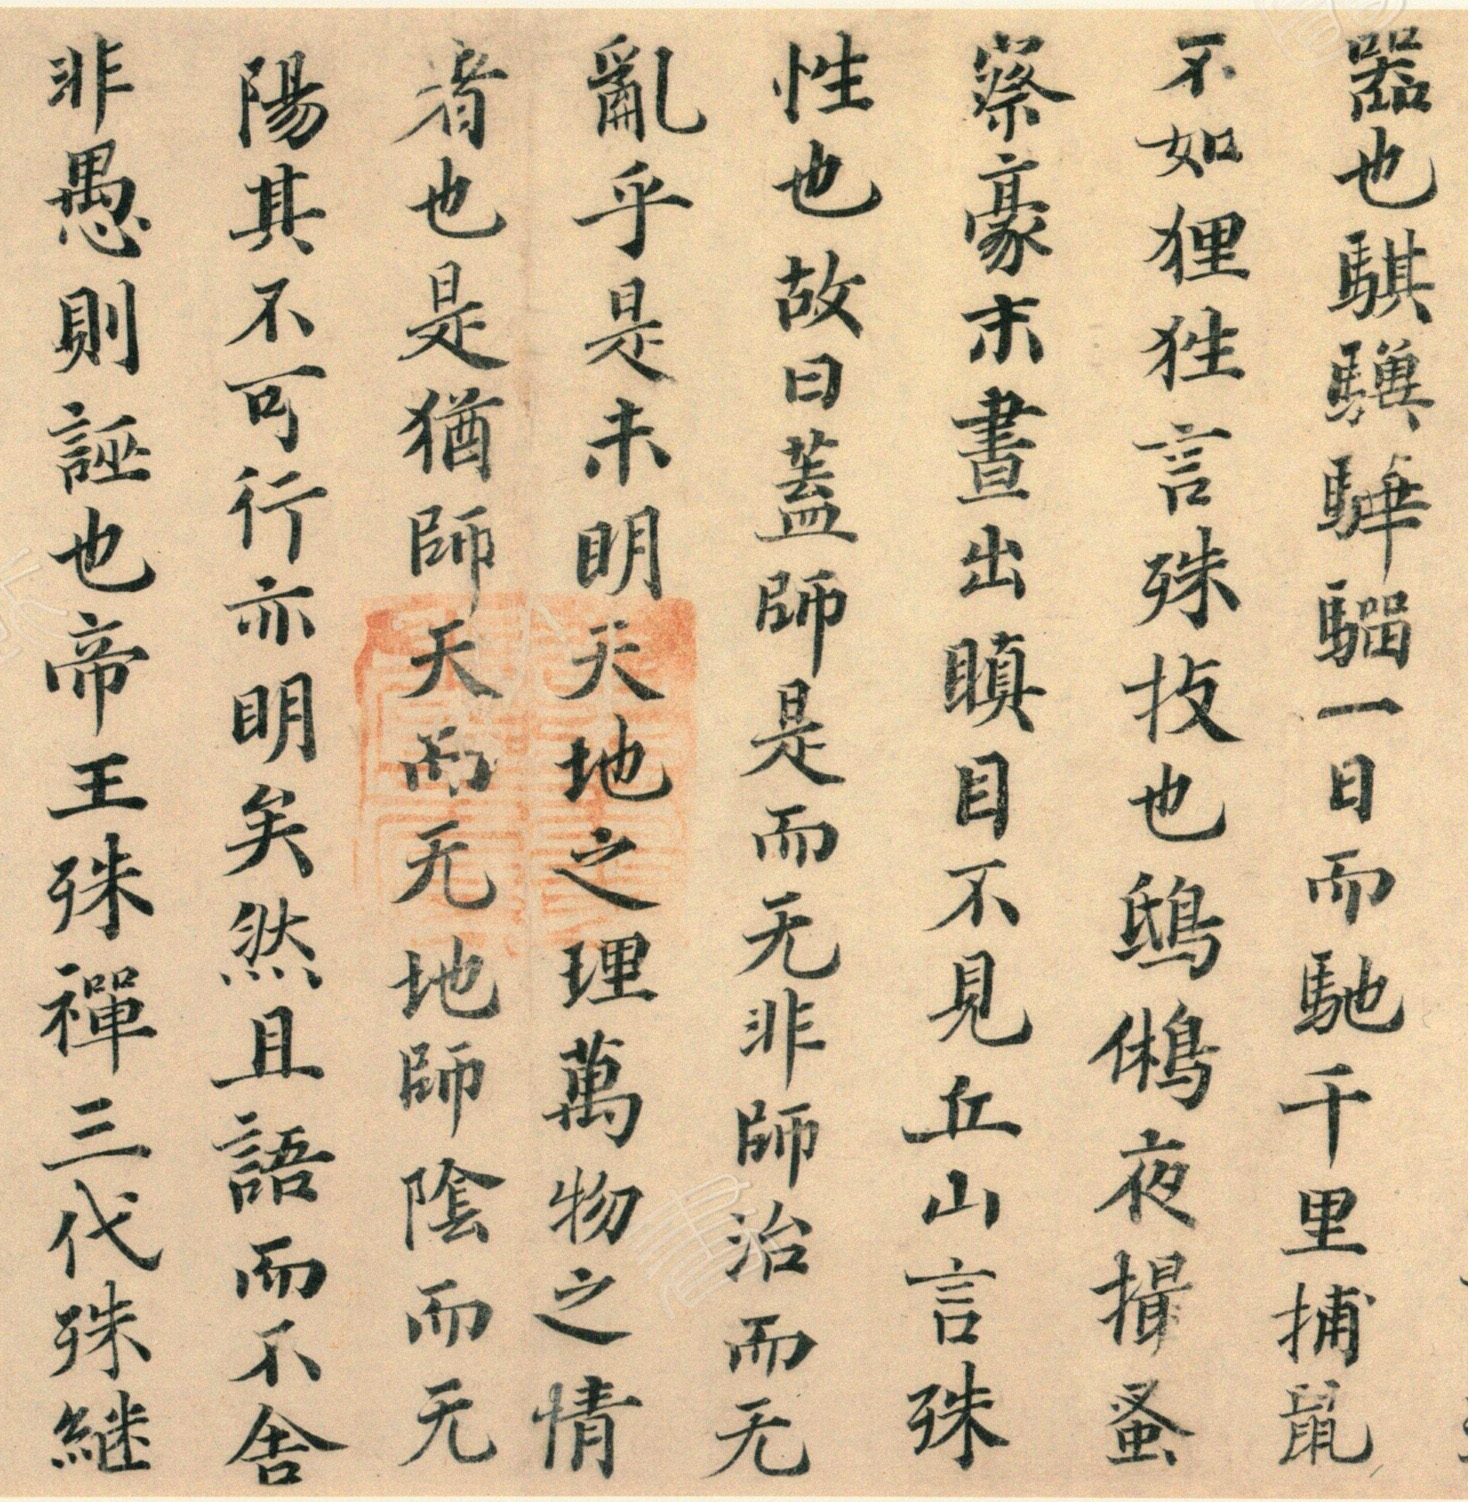 器也騏驥驊騮一日而馳千里捕鼠
不如狸狌言殊技也鴟鵂夜撮蚤
察豪末晝出瞋目不見丘山言殊
性也故曰蓋師是而无非師治而无
亂乎是未明天地之理萬物之情
者也是猶師天而无地師陰而无
陽其不可行亦明矣然且語而不舍
非愚則誣也帝王殊禪三代殊継